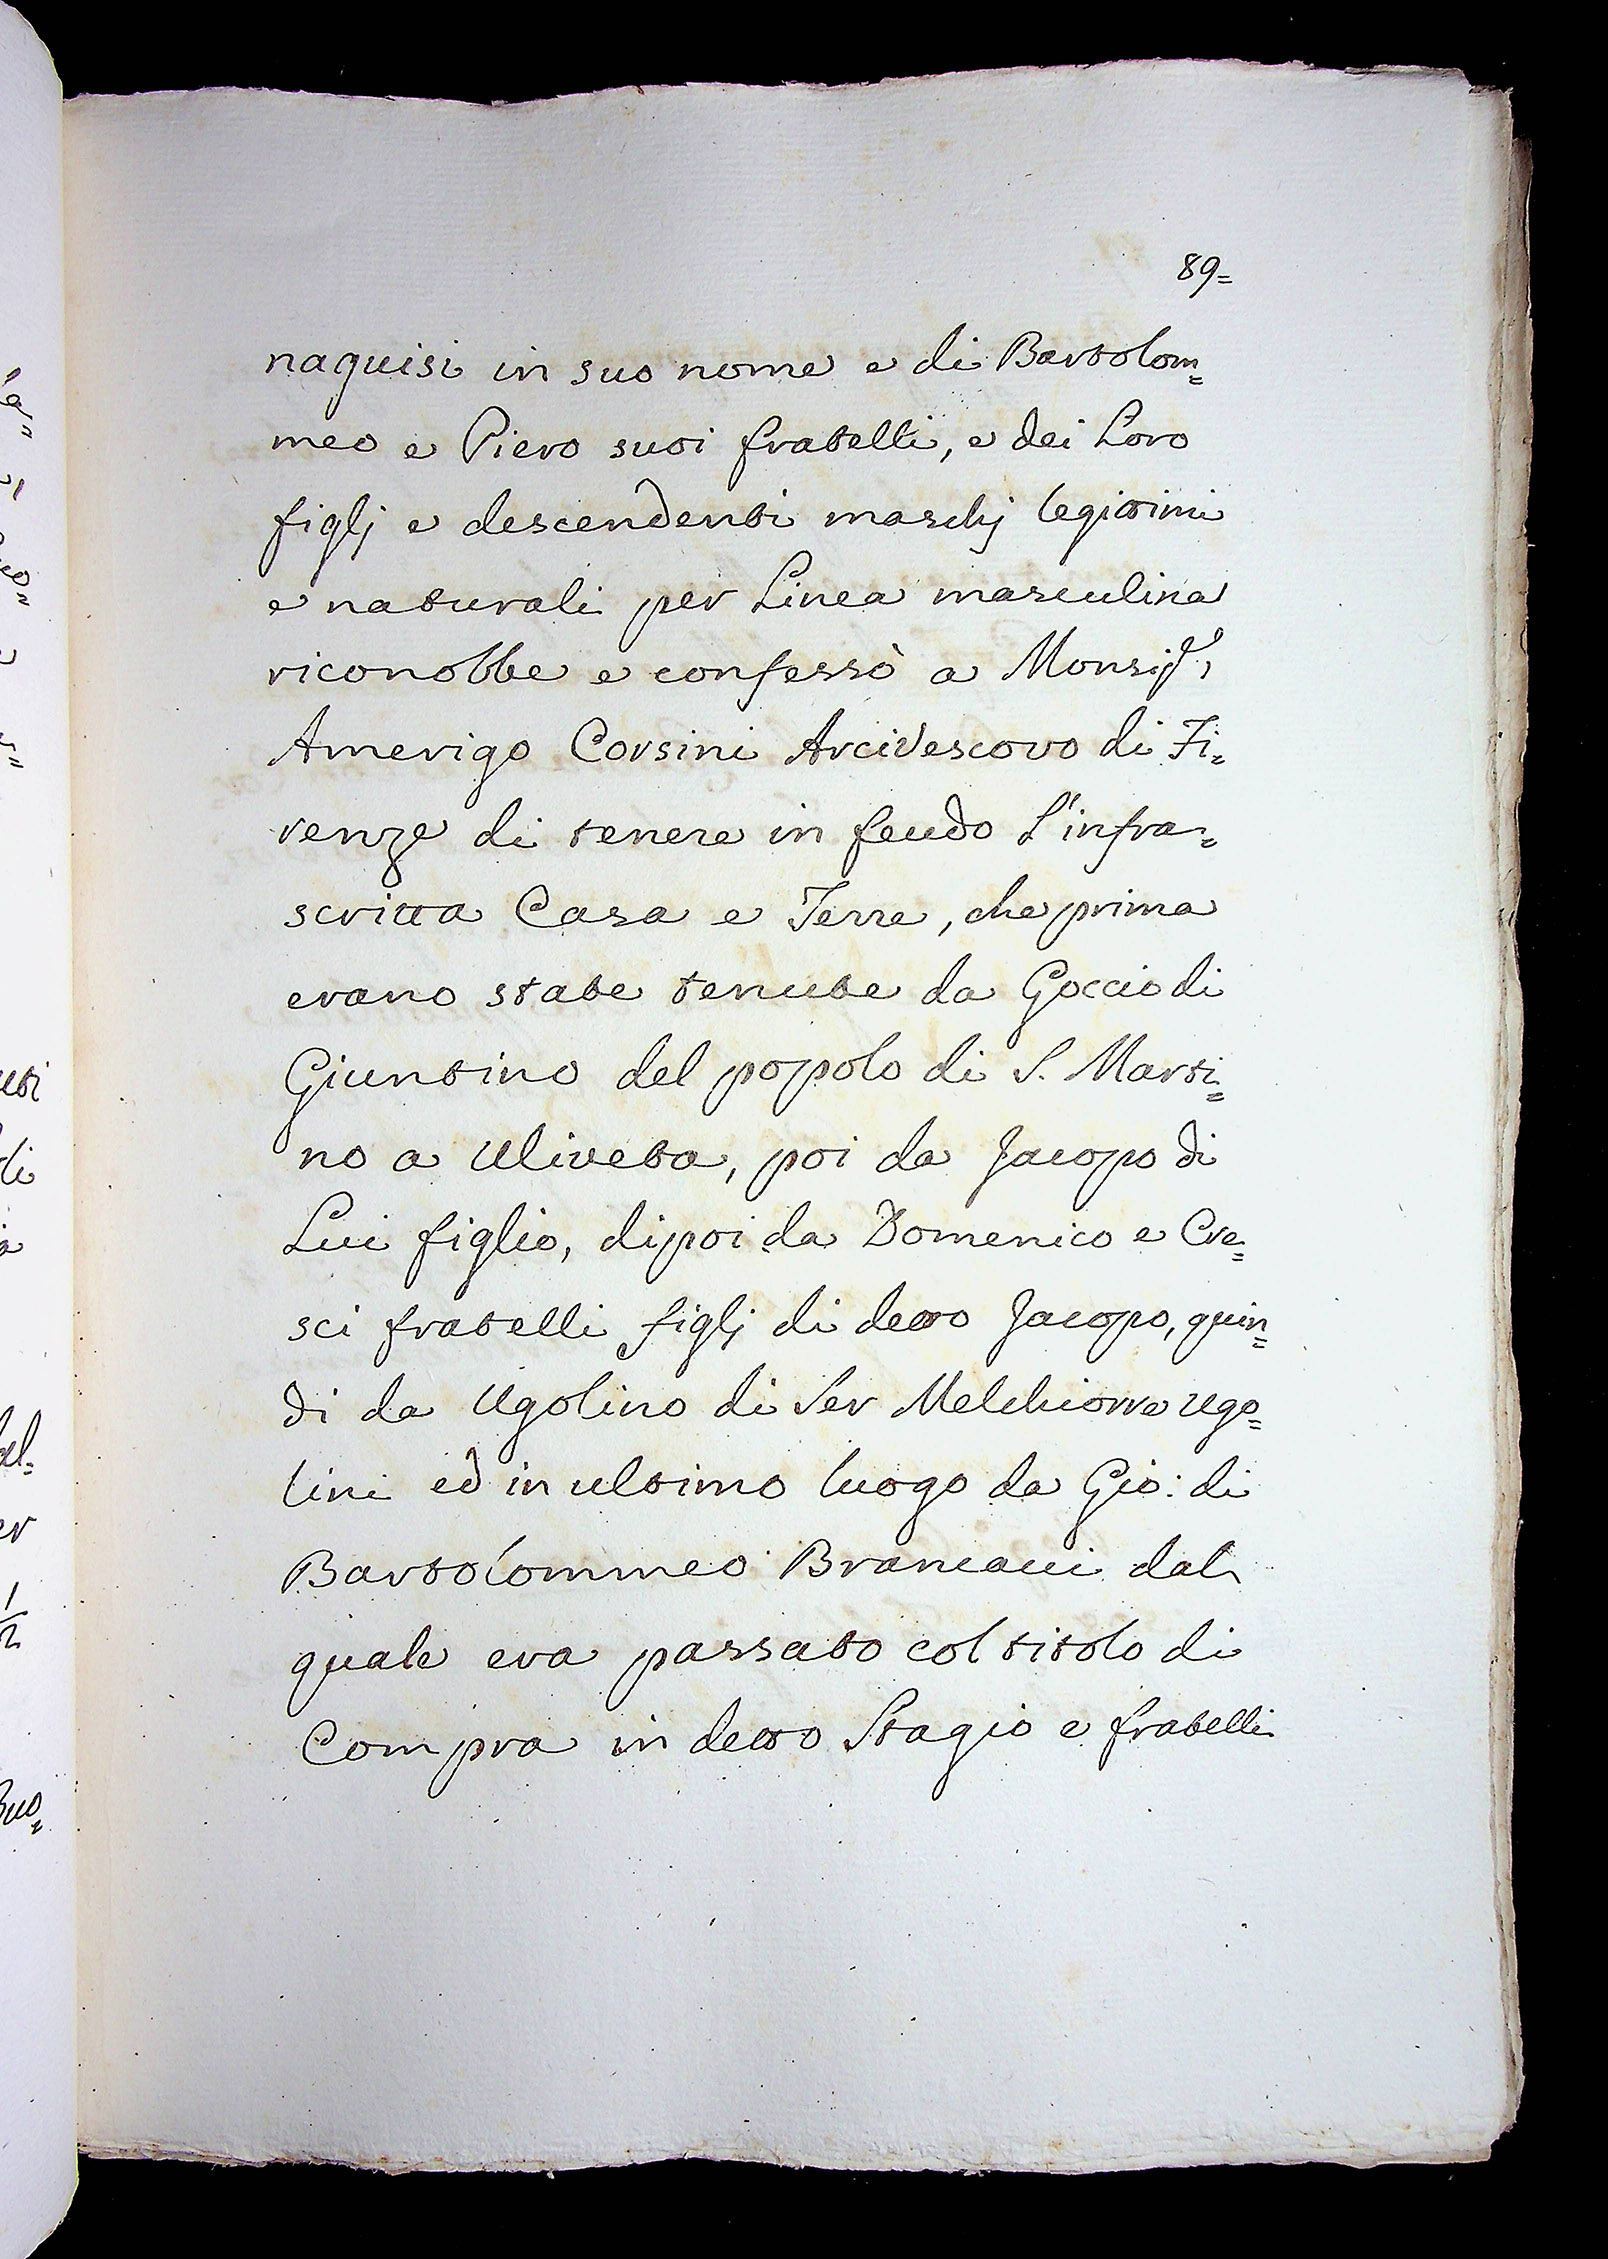 89=
naquisi in suo nome e di Bartolom=
meo e Piero suoi fratelli, e dei Loro
figlj e descendenti maschj legittimi
e naturali per Linea masculina
riconobbe e confessò a Monsig.r
Amerigo Corsini Arcivescovo di Fi=
renze di tenere in feudo L'infra=
scritta Casa e Terre, che prima
erano state tenute da Goccio di
Giuntino del popolo di S. Marti=
no a Uliveta, poi da Jacopo di
Lui figlio, dipoi da Domenico e Cre=
sci fratelli figlj di detto Jacopo, quin=
di da Ugolino di Ser Melchiorre Ugo=
lini ed in ultimo luogo da Gio: di
Bartolommeo Brancacci dal
quale era passato col titolo di
Compra in detto Stagio e fratelli